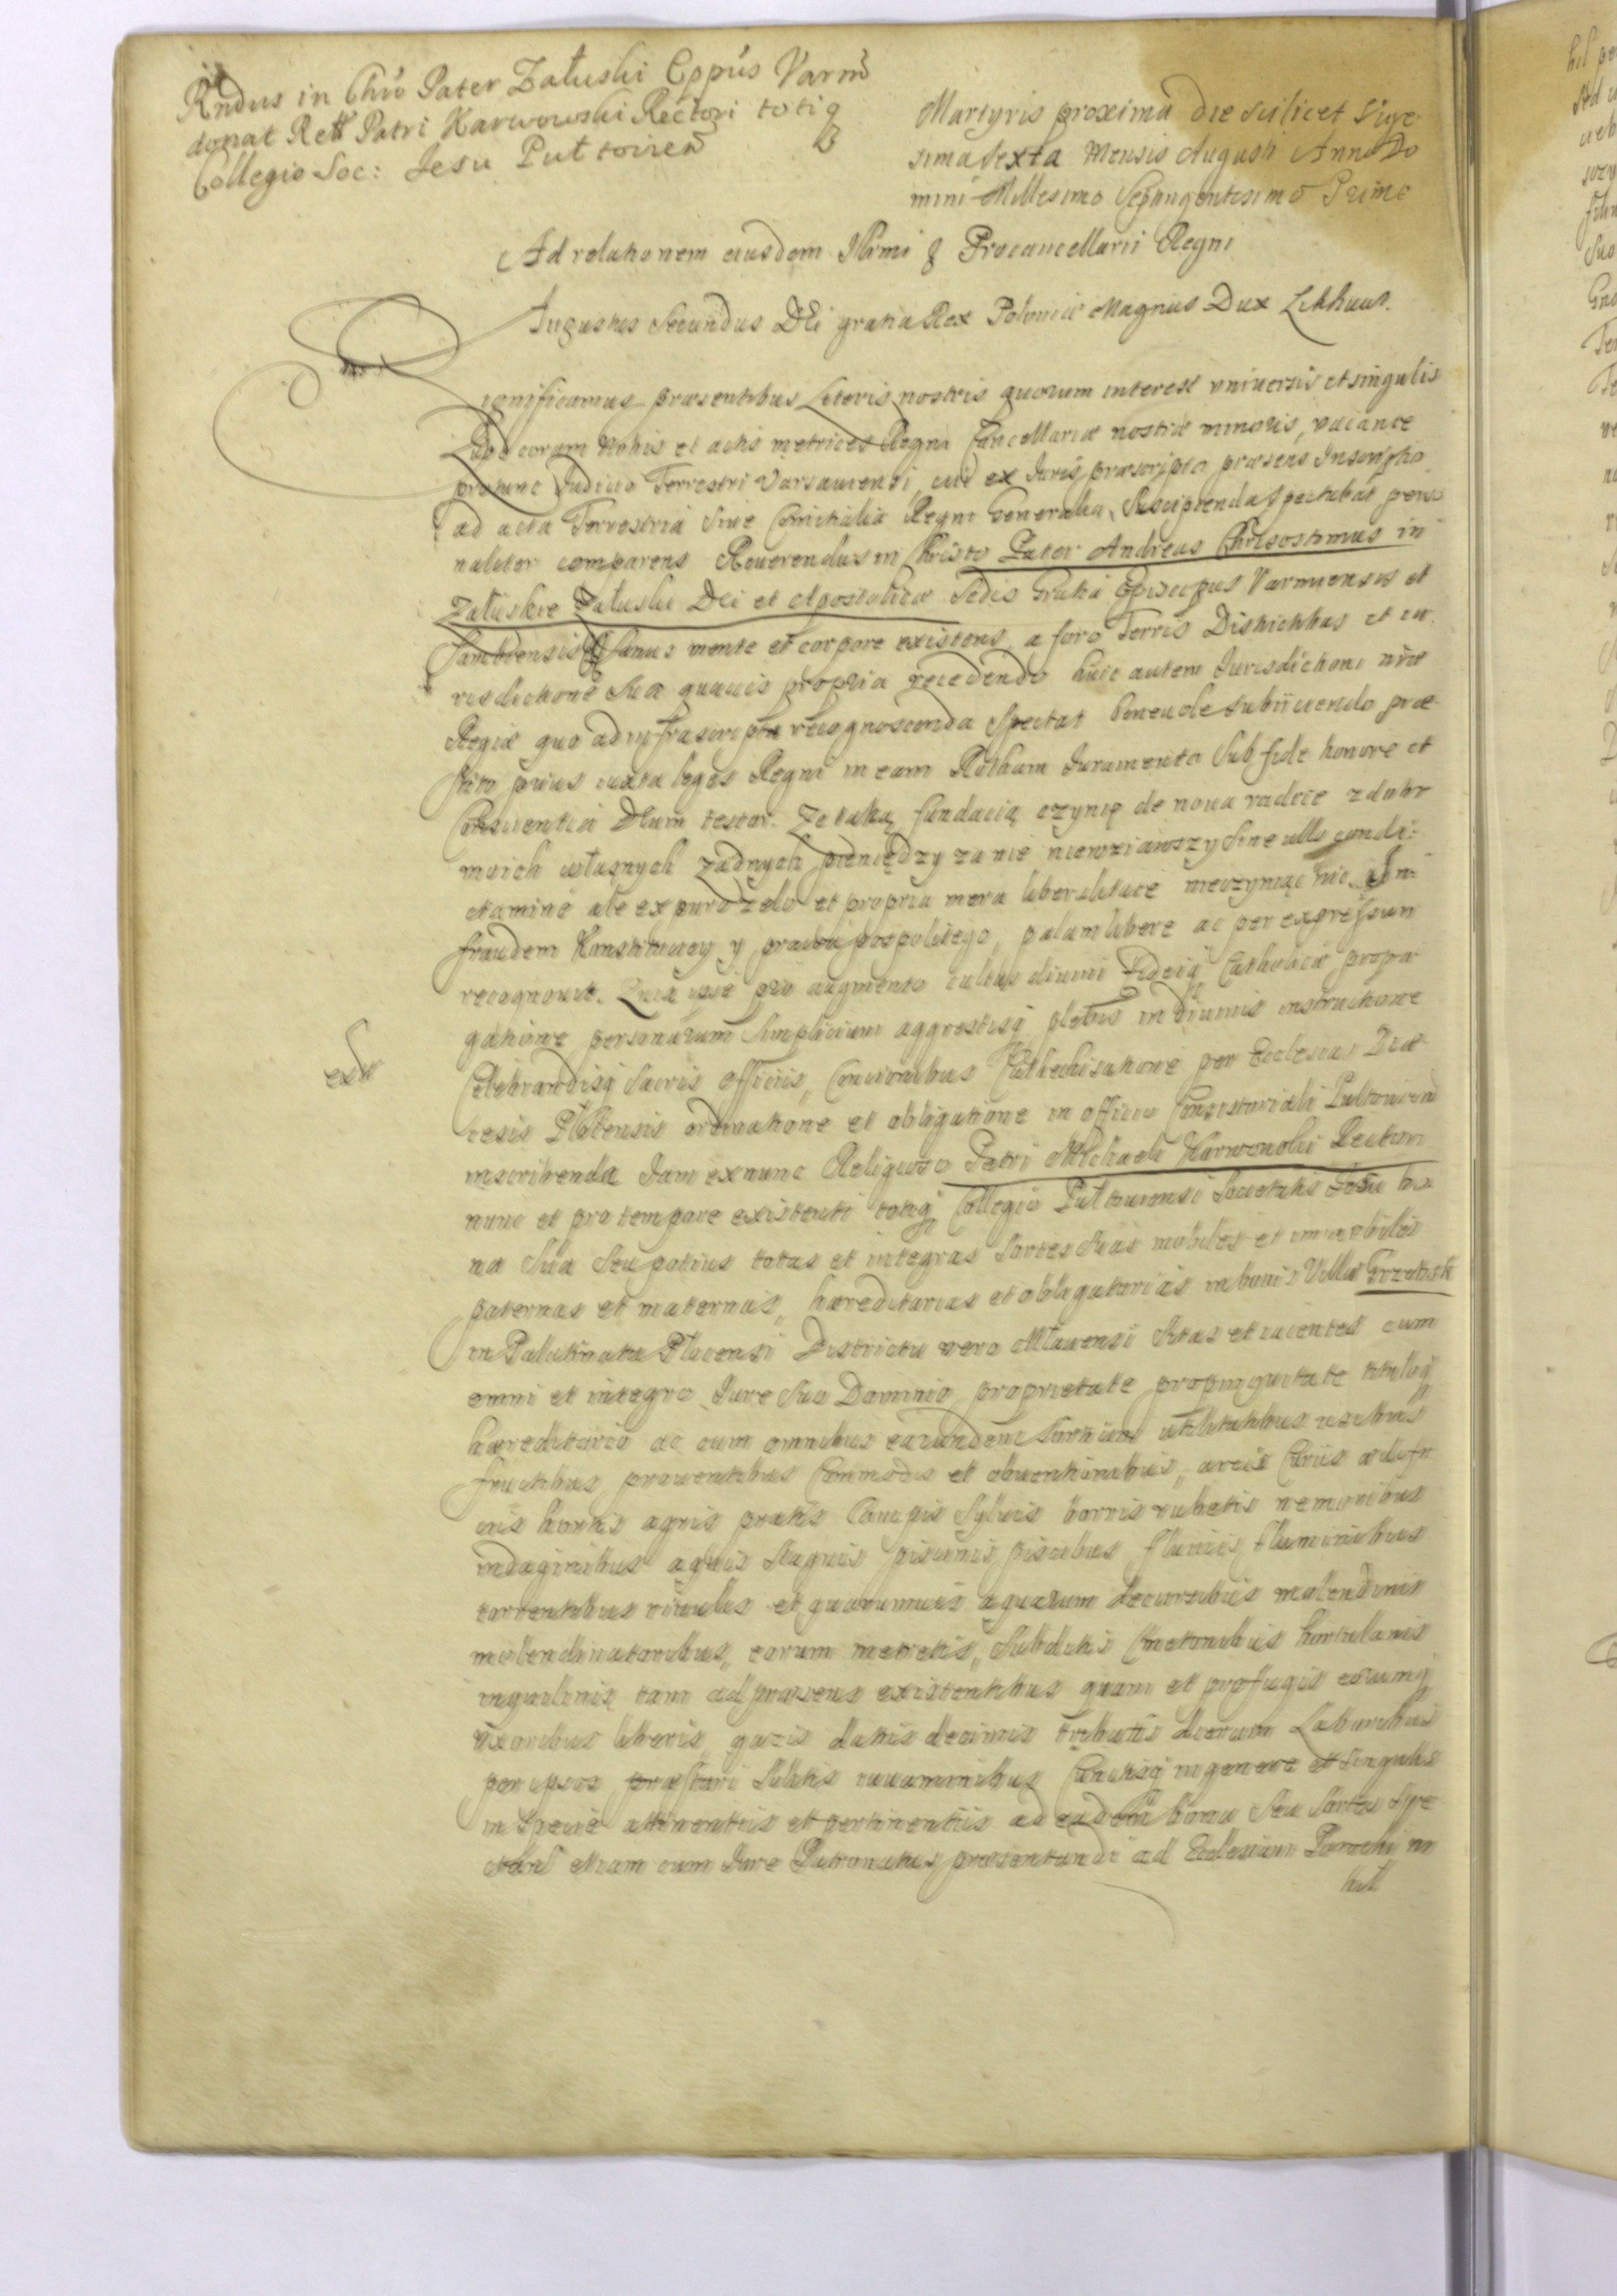 Rndus in Chro Pater Załuski Eppus Varm
donat Rett Patri Karwowski Rectori totiq
Collegio Soc: Jesu Pułtovien
Martyris proxima die scilicet Vige
sima sexta Mensis Augusti Anno Do
mini Millesimo Septingentesimo Primo
Ad relationem eiusdem Illrmi & Procancellarii Regni
Augustus Secundus Dei gratia Rex Poloniæ Magnus Dux Lithuan.
ignificamus præsentibus Literis nostris quorum interest vniuersis et singulis
Quod coram Nobis et actis metrices Regni Cancellariæ nostræ minoris, vacante
protunc Iudicio Terrestri Varsauiensi, cui ex Iuris præscripto præsens Inscriptio
ad acta Terrestria siue Comitialia Regni Generalia Suscipienda Spectabat perso
naliter comparens Reuerendus in Christo Pater Andreas Chrisostomus in
Załuskie Załuski Dei et Apostolicæ Sedis Gratia Episcopus Varmiensis et
Sambiensis Sanus mente et corpore existens, a foro Terris Districtibus et iu
risdictione Sua quauis propria recedendo huic autem Iurisdictioni nræ
Regiæ quo ad infrascripta recognoscenda Spectat beneuole subiiciendo præ
stito prius iuxta leges Regni in eam Rotham Iuramento Sub fide honore et
Conscientia Deum testor. Ze taką fundacią czynię de noua radice z dobr
moich własnych żadnych pieniędzy za nie niewziąwszy Sine ullo condi
ctamine ale ex puro zelo et propria mera liberalitate nieczyniąc nic in
fraudem Konstitucyi y prawa pospolitego, palam libere ac per expressum
recognouit. Quia ipse pro augmento cultus diuini Fideiq Catholicæ propa
gatione personarum Simplicium aggrestisq plebis in diuinis instructione
Celebrandisq Sacris officiis, Concionibus Cathechisatione per Ecclesias Diæ
cesis Plocensis ordinatione et obligatione in officio Consistoriali Pultouien
inscribenda Iam exnunc Religioso Patri Michaeli Karwowski Rectori
nunc et pro tempore existenti totiq Collegio Pułtouiensi Societatis Iesu bo
na Sua Seu potius totas et integras Sortes Suas mobiles et immobiles
paternas et maternas, hæreditarias et obligatorias in bonis Villæ Grzebsk
in Palatinatu Plocensi Districtu vero Mlauensi Sitas et iacentes cum
omni et integro Iure Suo Dominio proprietate propinquitate tituloq
hæreditario ac cum omnibus earundem Sortium utilitatibus usibus
fructibus prouentibus Commodis et obuentionibus, areis Curiis ædifi
ciis hortis agris pratis Campis Syluis borris rubetis nemoribus
indaginibus aquis Stagnis piscinis piscibus fluuiis fluminibus
torrentibus riuulis et quarumuis aquarum decursibus molendinis
molendinatoribus, eorum metretis, Subditis Cmetonibus hortulanis
inquilinis tam ad præsens existentibus quam et profugis eorumq
uxoribus liberis, gazis datiis decimis tributis dierum Laboribus
per ipsos præstari Solitis iuuaminibus Cunctisq in genere et Singulis
in Specie attinentiis et pertinentiis ad eadem bona Seu Sortes Spe
ctan etiam cum Iure Patronatus præsentandi ad Ecclesiam Parochi